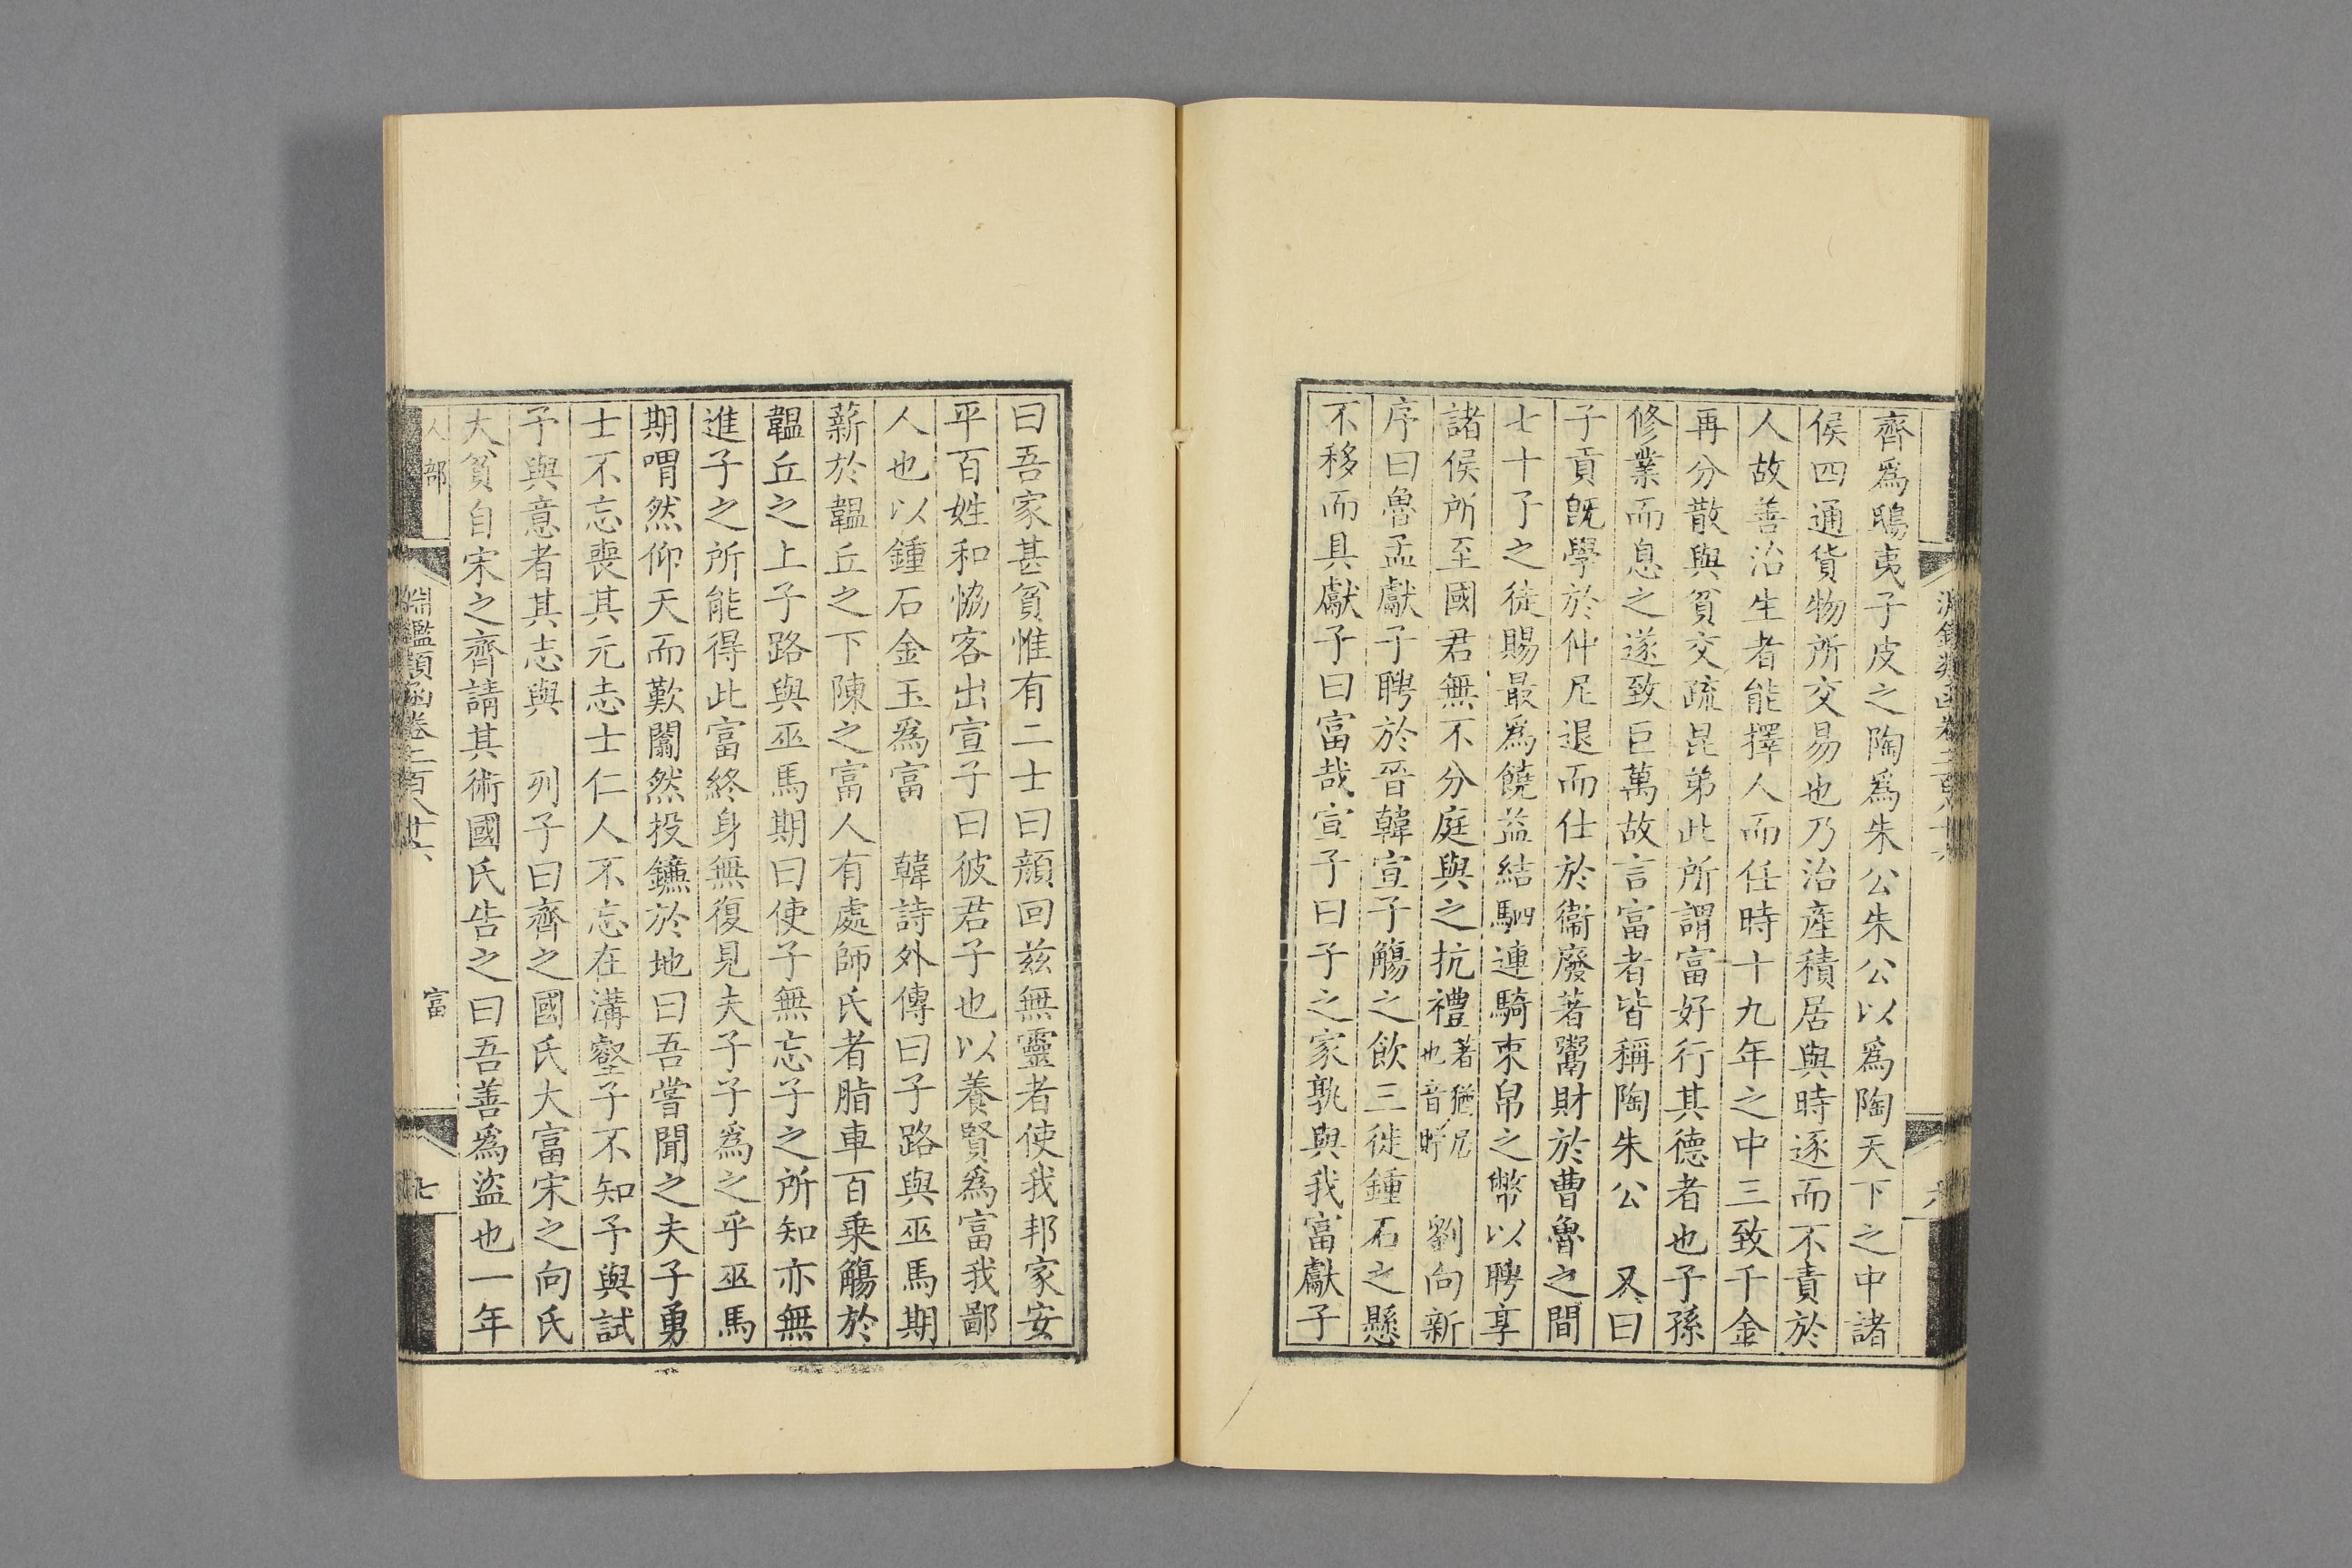 齊爲鴟夷子皮之陶爲朱公朱公以爲陶天下之中諸
侯四通貨物所交易也乃治產積居與時逐而不責於
人故善治生者能擇人而任時十九年之中三致千金
再分散與貧交疏昆弟此所謂富好行其德者也子孫
修業而息之遂致巨萬故言富者皆稱陶朱公　又曰
子貢旣學於仲尼退而仕於衞廢著鬻財於曹魯之間
七十子之徒賜最爲饒益結駟連騎束帛之幣以聘享
諸侯所至國君無不分庭與之抗禮著猶居也音貯　劉向新
序曰魯孟獻子聘於晉韓宣子觴之飲三徙鍾石之懸
不移而具獻子曰富哉宣子曰子之家孰與我富獻子
曰吾家甚貧惟有二士曰顏回兹無靈者使我邦家安
平百姓和恊客出宣子曰彼君子也以養賢爲富我鄙
人也以鍾石金玉爲富　韓詩外傳曰子路與巫馬期
薪於韞丘之下陳之富人有處師氏者脂車百乗觴於
韞丘之上子路與巫馬期曰使子無忘子之所知亦無
進子之所能得此富終身無復見夫子子爲之乎巫馬
期喟然仰天而歎闟然投鐮於地曰吾嘗聞之夫子勇
士不忘喪其元志士仁人不忘在溝壑子不知予與試
予與意者其志與　列子曰齊之國氏大富宋之向氏
大貧自宋之齊請其術國氏告之曰吾善爲盜也一年
人部
淵鑑類函卷二百八十六
富
七